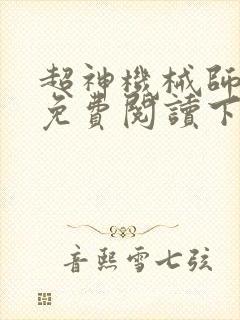 超神機械師
免費閱讀下
音熙雪七弦